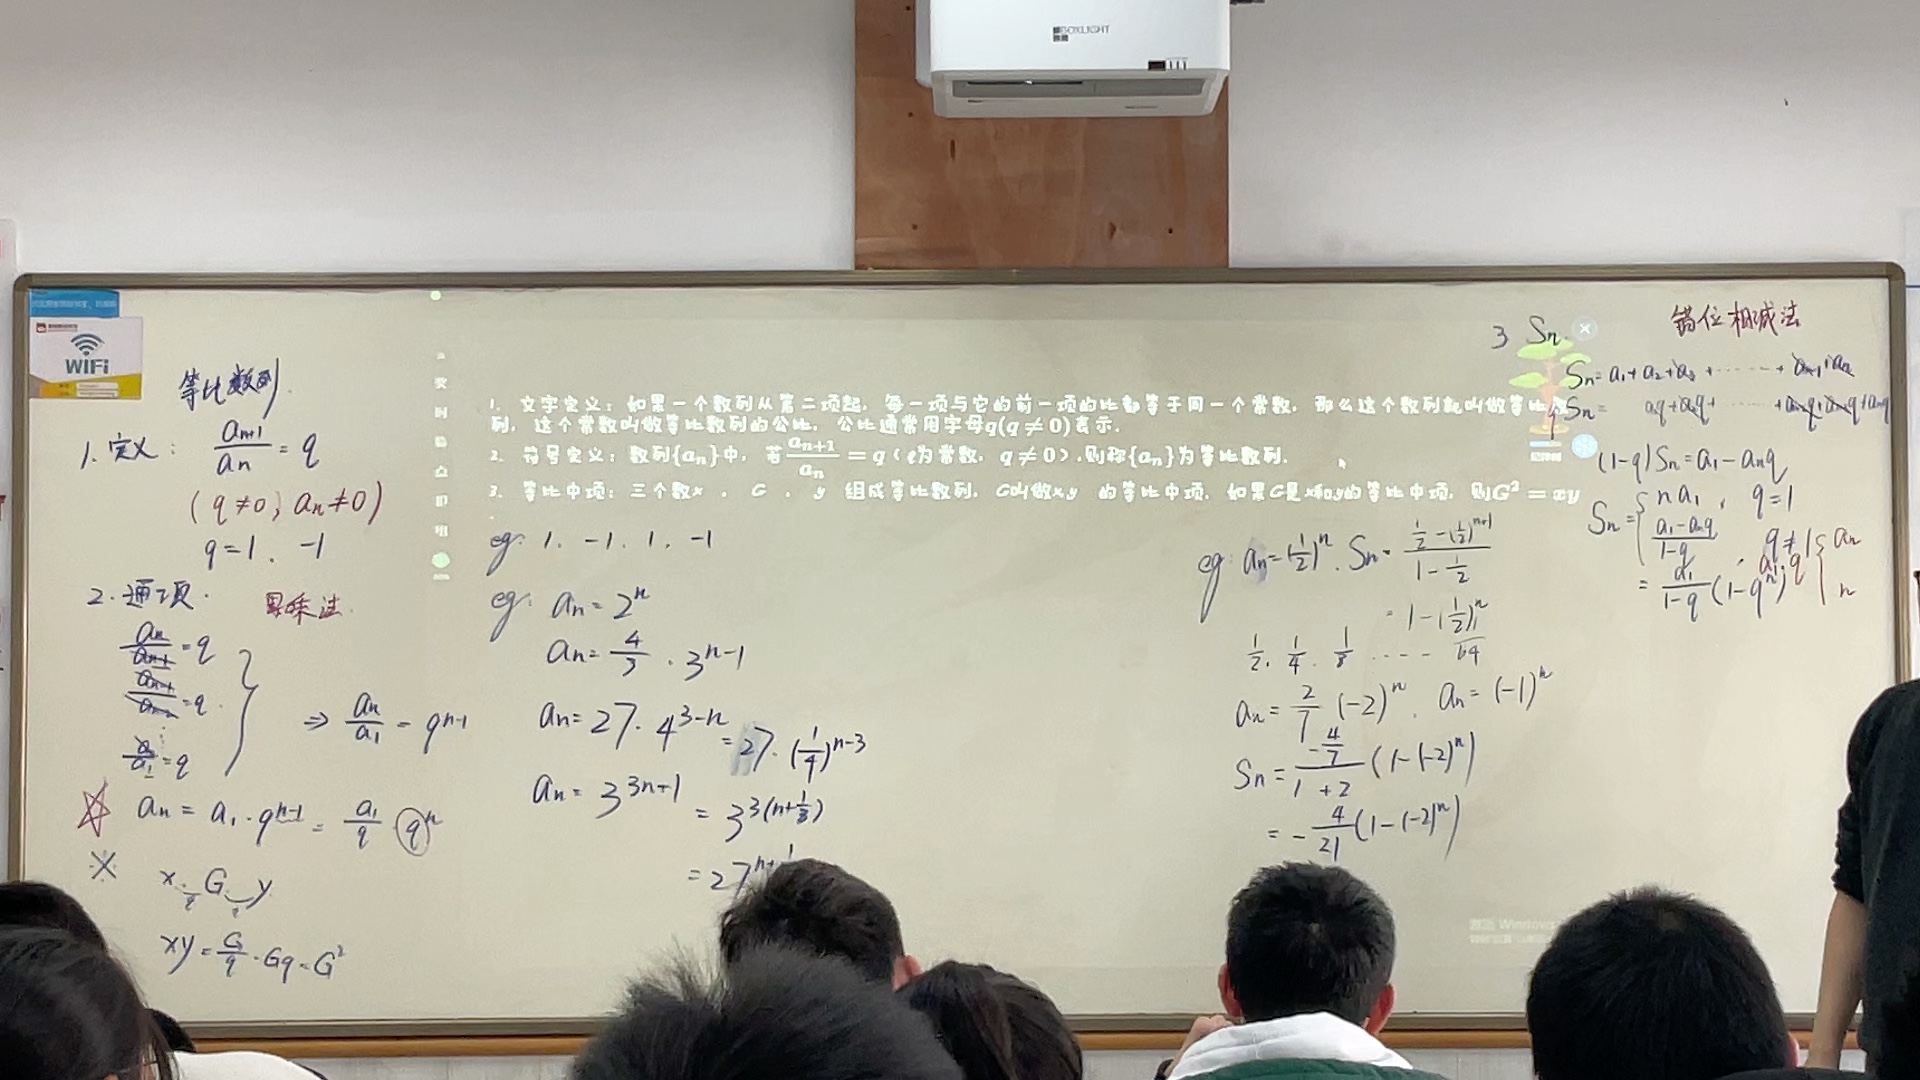 BOXLIGHT
WiFi
等比数列.
1. 定义: a_{n+1}/a_n = q
(q≠0, a_n≠0)
q=1. -1
2. 通项. 累乘法.
a_n/a_{n-1} = q
a_{n-1}/a_{n-2} = q
⋮
a_2/a_1 = q
⇒ a_n/a_1 = q^{n-1}
☆ a_n = a_1·q^{n-1} = a_1/q · q^n
※ x. G. y
xy = G/q · Gq = G²
1. 文字定义：如果一个数列从第二项起，每一项与它的前一项的比都等于同一个常数，那么这个数列就叫做等比数
列，这个常数叫做等比数列的公比，公比通常用字母q(q ≠ 0)表示.
2. 符号定义：数列{a_n}中，若a_{n+1}/a_n = q（q为常数，q ≠ 0）,则称{a_n}为等比数列.
3. 等比中项：三个数x ， G ， y 组成等比数列，G叫做x,y 的等比中项，如果G是x和y的等比中项，则G² = xy
eg: 1. -1. 1. -1
eg: a_n = 2^n
a_n = 4/3 · 3^{n-1}
a_n = 27·4^{3-n} = 27·(1/4)^{n-3}
a_n = 3^{3n+1} = 3^{3(n+1/3)}
3 S_n. 错位相减法
S_n = a_1+a_2+a_3+ ······ +a_{n-1}+a_n
(1-q)S_n = a_1-a_nq
S_n = { na_1, q=1
(a_1-a_nq)/(1-q), q≠1
= a_1/(1-q) (1-q^n)
a_1 q { a_n
n
eg: a_n=(1/2)^n. S_n = (1/2-(1/2)^{n+1})/(1-1/2)
= 1-(1/2)^n
1/2. 1/4. 1/8 ---- 1/64
a_n = 2/7 (-2)^n. a_n = (-1)^n
S_n = (-4/7)/(1+2) (1-(-2)^n)
= -4/21 (1-(-2)^n)